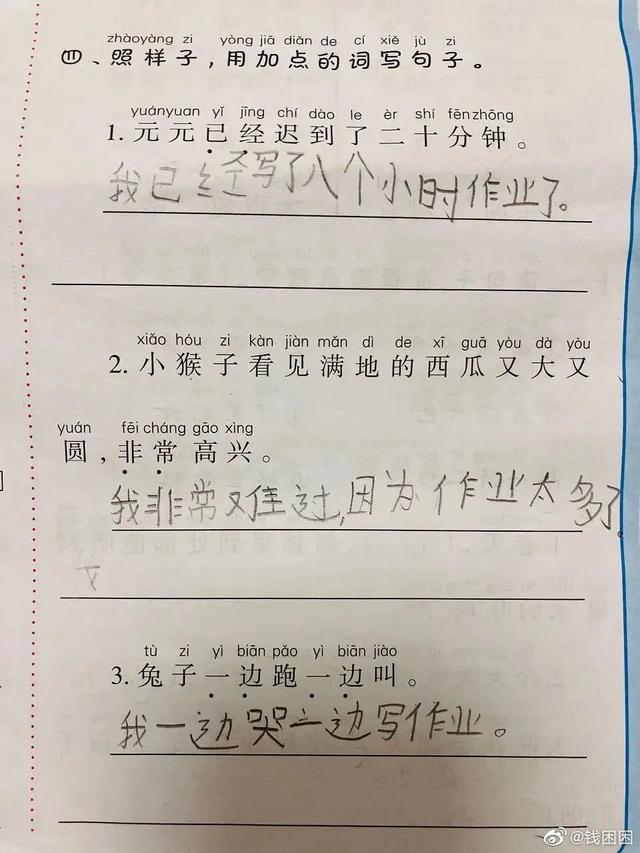 zhàoyàng zi yòng jiā diǎn de cí xiě jù zi
四、照样子，用加点的词写句子。
yuányuan yǐ jīng chí dào le èr shí fēnzhōng
1. 元元已经迟到了二十分钟。
我已经写了八个小时作业了。
xiǎo hóu zi kàn jiàn mǎn dì de xī guā yòu dà yòu
2. 小猴子看见满地的西瓜又大又
yuán fēi cháng gāo xìng
圆，非常高兴。
我非常难过，因为作业太多了
tù zi yì biān pǎo yì biān jiào
3. 兔子一边跑一边叫。
我一边哭一边写作业。
@钱困困